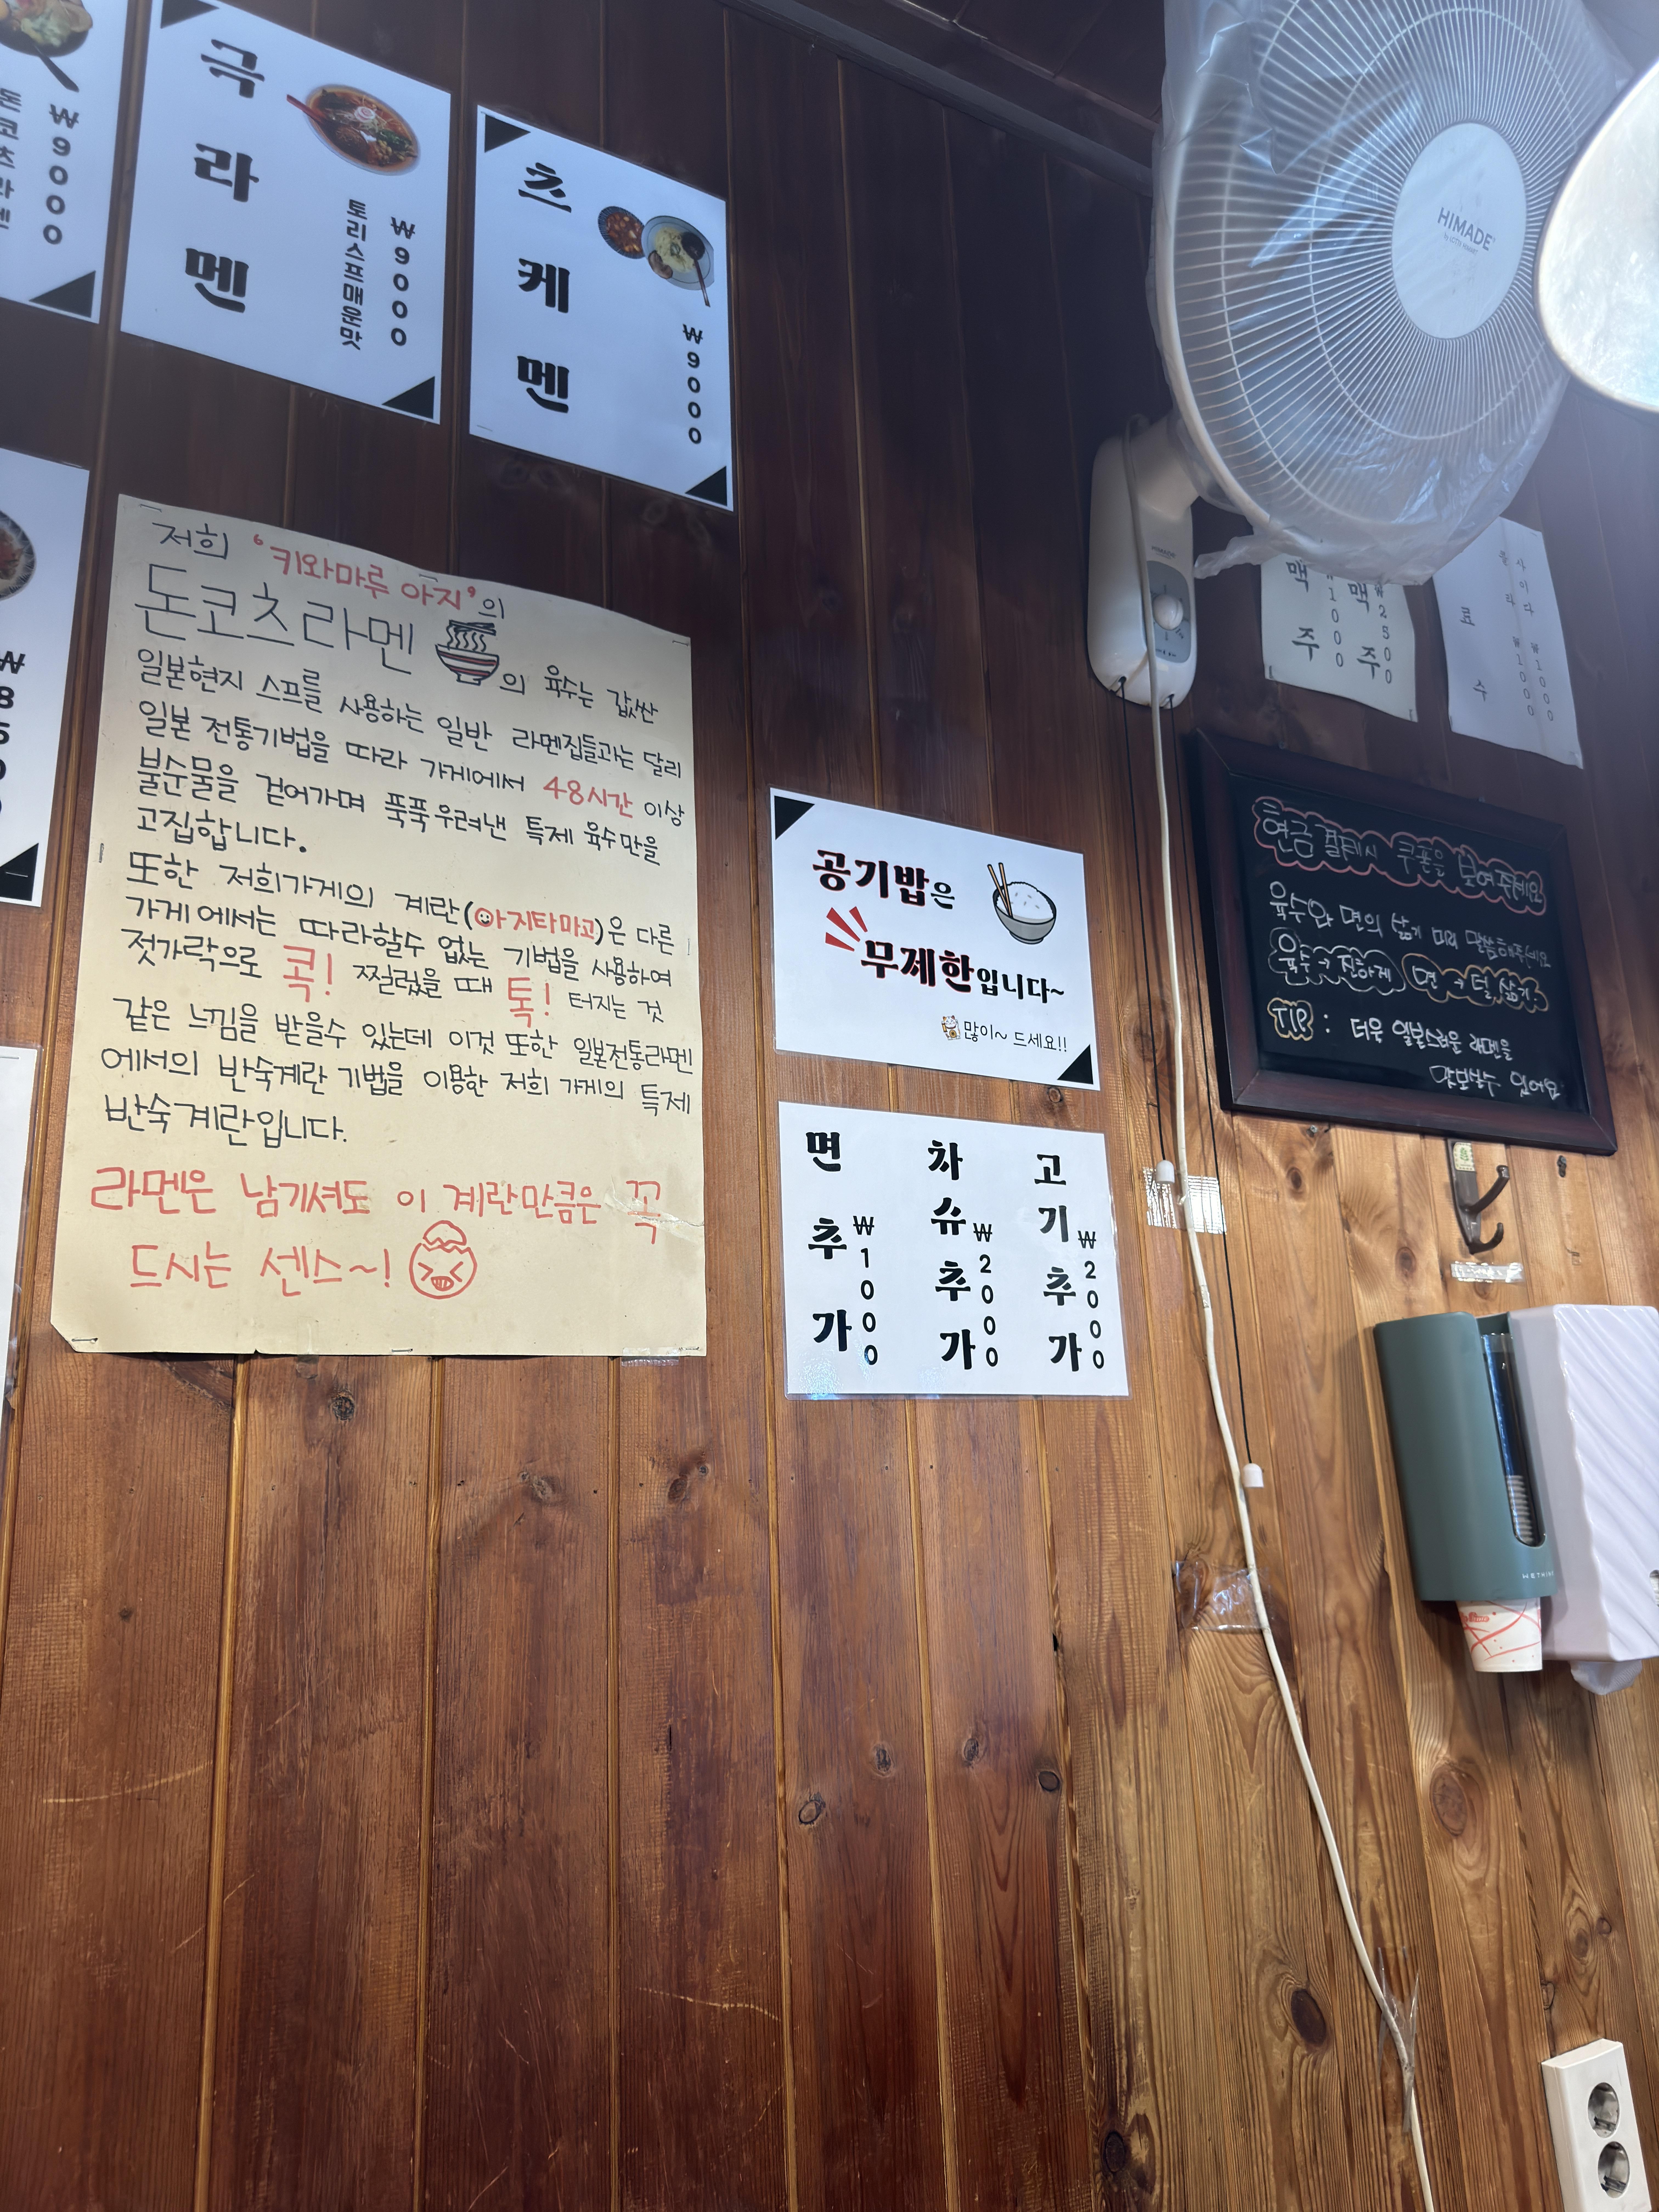 ₩9000
돈코츠라멘
극라멘
토리스프매운맛
₩9000
츠케멘
₩9000
HIMADE
저희 '키와마루 아지'의
돈코츠라멘의 육수는 값싼
일본현지 스프를 사용하는 일반 라멘집들과는 달리
일본 전통기법을 따라 가게에서 48시간 이상
불순물을 걷어가며 푹푹우려낸 특제 육수만을
고집합니다.
또한 저희가게의 계란(아지타마고)은 다른
가게에서는 따라할수 없는 기법을 사용하여
젓가락으로 콕! 찔렀을 때 톡! 터지는 것
같은 느낌을 받을수 있는데 이것 또한 일본전통라멘
에서의 반숙계란 기법을 이용한 저희 가게의 특제
반숙계란입니다.
라멘은 남기셔도 이 계란만큼은 꼭
드시는 센스~!
공기밥은
무제한입니다~
많이~ 드세요!!
면추가
₩1000
차슈추가
₩2000
고기추가
₩2000
맥주
맥주
₩2500
음료수
사이다 ₩1000
현금결제시 쿠폰을 보여주세요
육수와 면의 삶기 미리 말씀해주세요
육수→진하게 면→덜 삶기
TIP : 더욱 일본스러운 라멘을
맛보실수 있어요